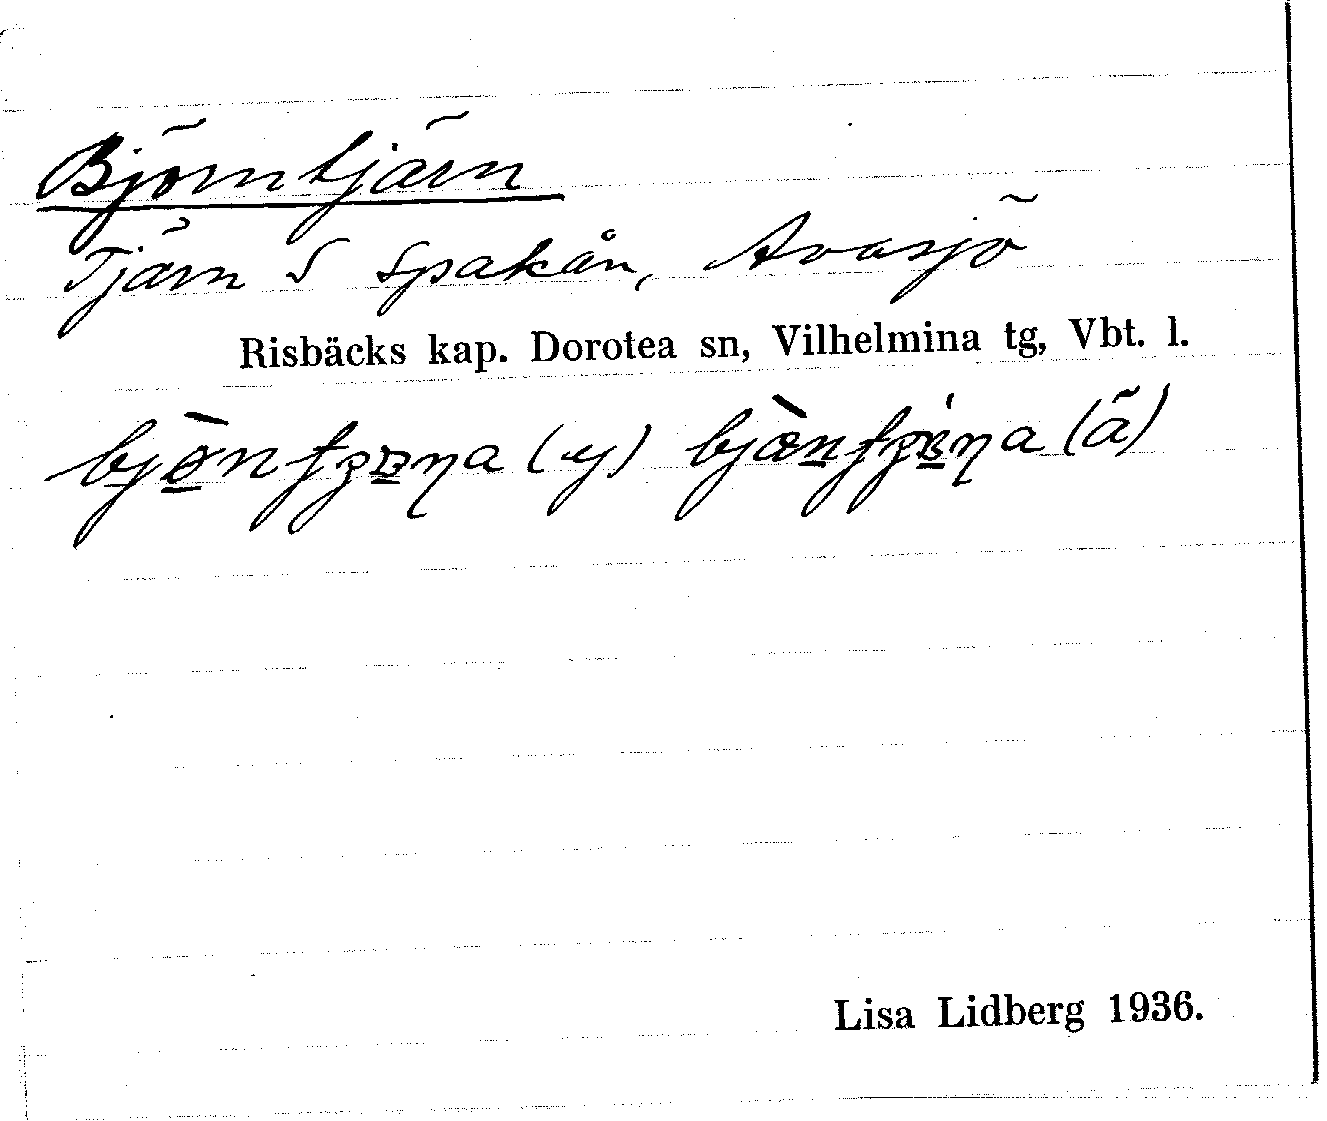 Björntjärn
Tjärn S Spakån, Avasjö
Risbäcks kap. Dorotea sn, Vilhelmina tg, Vbt. l.
(y) (ä)
Lisa Lidberg 1936.